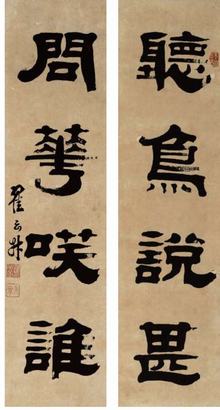 聽鳥說甚
問華咲誰
翟云升